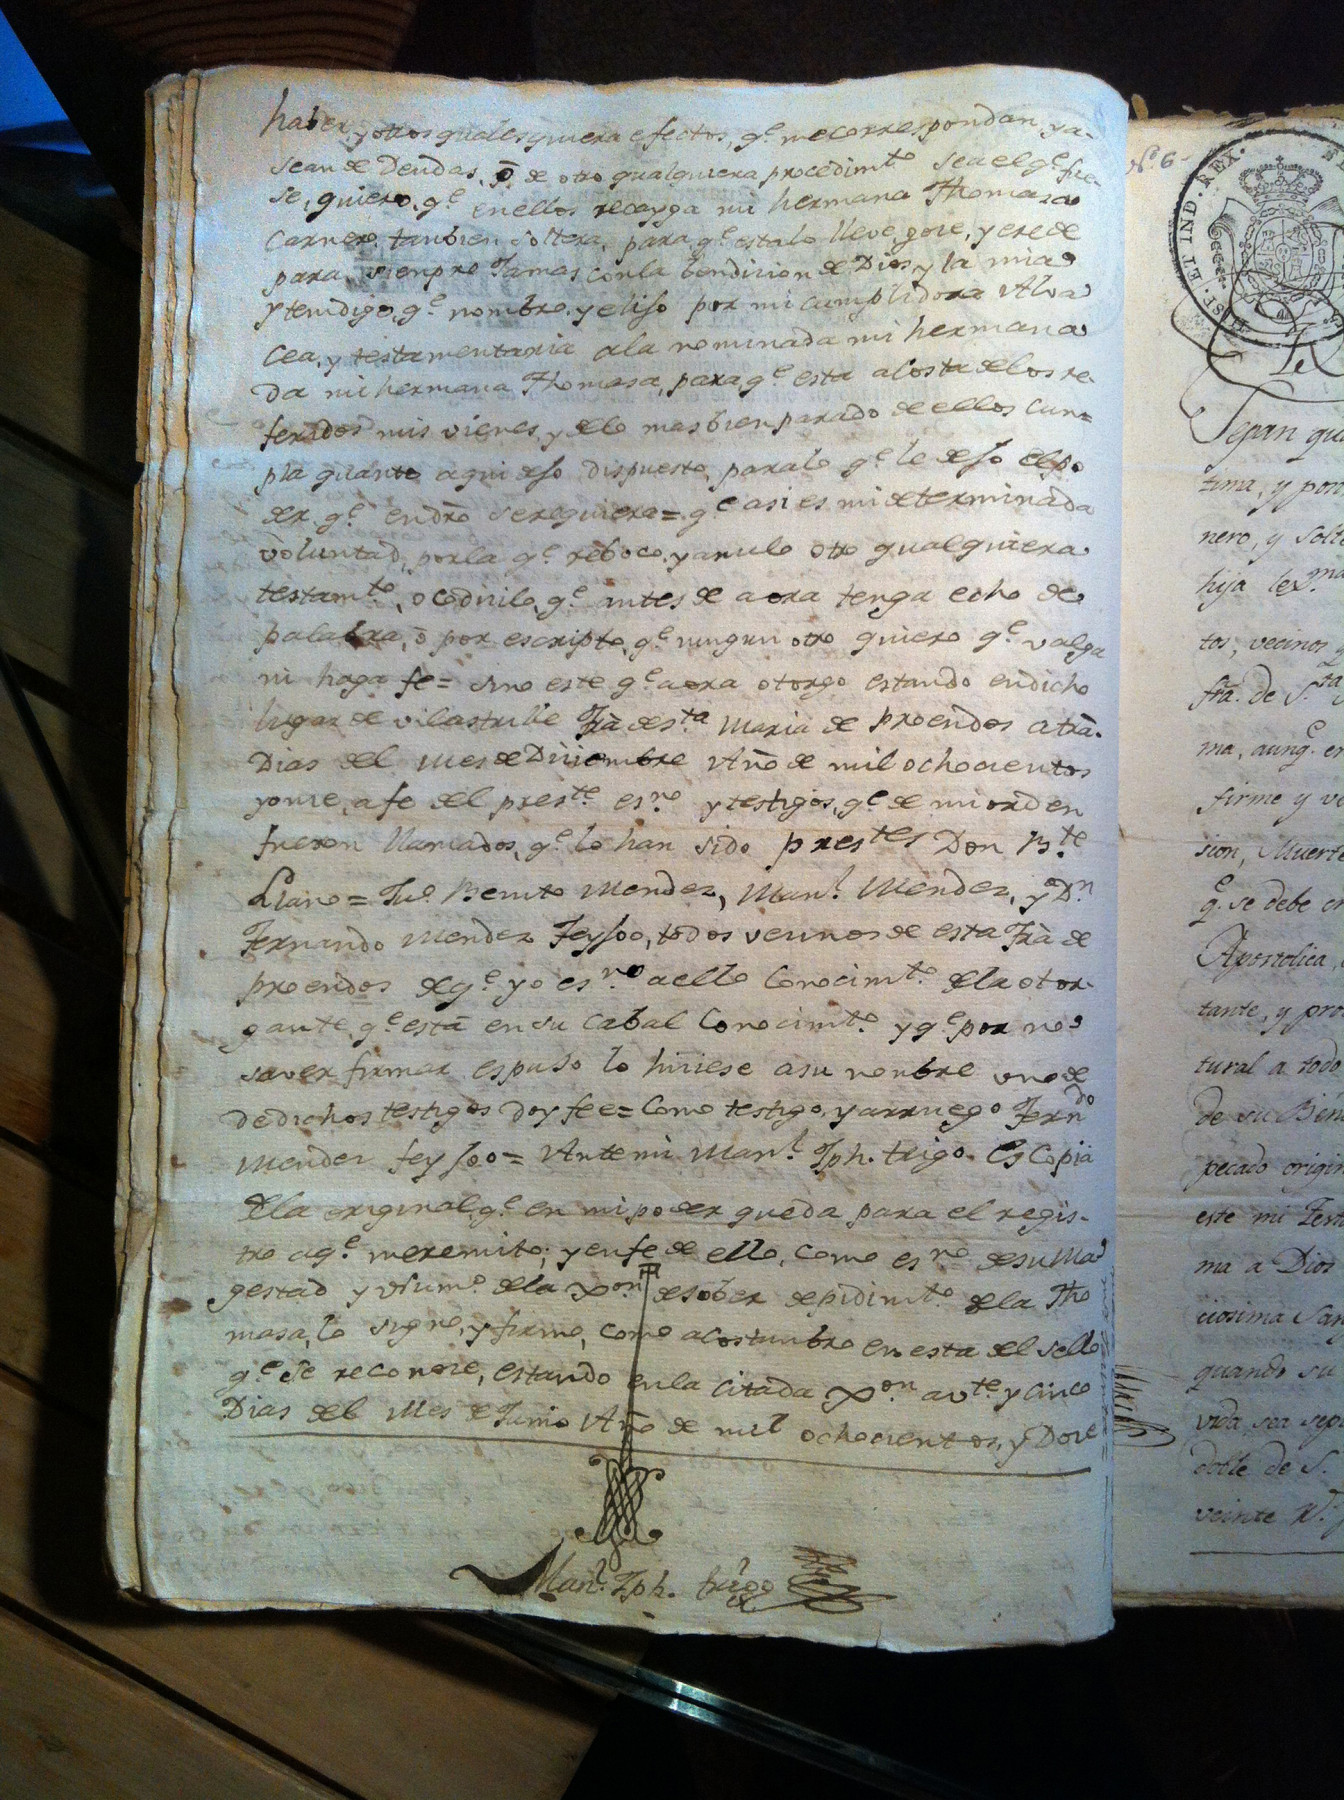 haber, y otros qualesquiera efectos, q.e me correspondan, ya
sean de Deudas, ō, de otro qualquiera procedim.to sea el q.e fue-
se, quiero, q.e en ellos recayga mi hermana Thomasa
Carnero, tanbien soltera, para q.e esta lo lleve, gose, y erede
para sienpre Jamas con la bendicion de Dios, y la mia
y tendigo, q.e nombro, y eliso por mi cumplidora Alva
cea, y testamentaria a la nominada mi hermana
da mi hermana Thomasa, para q.e esta a costa de los re-
feridos mis vienes, y de lo mas bien parado de ellos cun=
pla quanto aqui deso dispuesto, para lo q.e le deso el po
der q.e en dr̃o se requiera = q.e asi es mi determinada
voluntad, por la q.e reboco, y anulo otro qualquiera
testam.to, o codicilo, q.e antes de aora tenga echo de
palabra, ō por escripto, q.e ningun otro quiero q.e valga
ni haga fe = sino este q.e aora otorgo estando en dicho
lugar de vilastrille frã de s.ta Maria de proendos a trã.
Dias del Mes de Diciembre Año de mil ochocientos
y onse, a fe del pres.te es.no y testigos, q.e de mi orden
fueron llamados, q.e lo han sido pres.tes Don B.te
Llano = Ju.o Benito Mendez, Man.l Mendez, y D.n
Fernando Mendez Feyjoo, todos vecinos de esta frã de
proendos de q.e yo es.no a ello Conocim.to de la otor-
gante, q.e està en su cabal Conocim.to y q.e por no
saver firmar espuso lo hiciese a su nombre uno de
de dichos testigos doy fee = Como testigo, y a rruego Fern.do
Mendez feyjoo = Ante mi Man.l Jph. trigo. Es Copia
de la original q.e en mi poder queda para el regis-
tro a q.e me remito; y en fe de ello, como es.no de su Ma
gestad y vr̃ num.o de la Xon de sober de pidim.to de la Tho
masa, lo signo, y firmo, como acostumbro en esta del sello
q.e se reconoce, estando en la citada Xon a v.te y cinco
Dias del Mes de Junio Año de mil ochocientos, y Doce
Man.l Jph. trigo
N.o 6
HISP. ET IND. REX.
Sepan qu
tima, y pon
nero, y solte
hija lex.ma
tos, vecinos
frã. de S.ta
ma, aunq.e en
firme y v
sion, Muerte
q.e se debe cr
Apostolica,
tante, y pro
tural a todo
de su Bien
pecado origin
este mi Test
ma a Dios
ciosima San
quando su
vida sea sep
doble de S.
veinte R.s